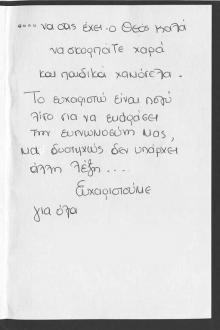 .... να σας έχει ο Θεός καλά
να σκορπάτε χαρά
και παιδικά χαμόγελα.
Το ευχαριστώ είναι πολύ
λίγο για να εκφράσει
την ευγνωμοσύνη μας,
μα δυστυχώς δεν υπάρχει
άλλη λέξη....
Ευχαριστούμε
για όλα